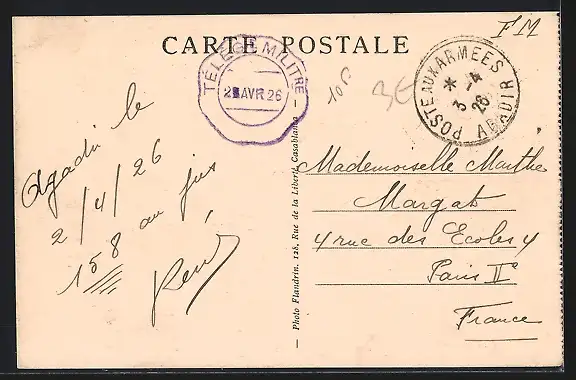 CARTE POSTALE
FM
TÉLÉGIE MILITRE
2 AVR 26
POSTE AUX ARMEES AGADIR
* 3 -4 26
10F
3€
Agadir le
2/4/26
158 au jus
René
Photo Flandrin, 128, Rue de la Liberté, Casablanca
Mademoiselle Marthe
Margat
4 rue des Ecoles 4
Paris Ve
France